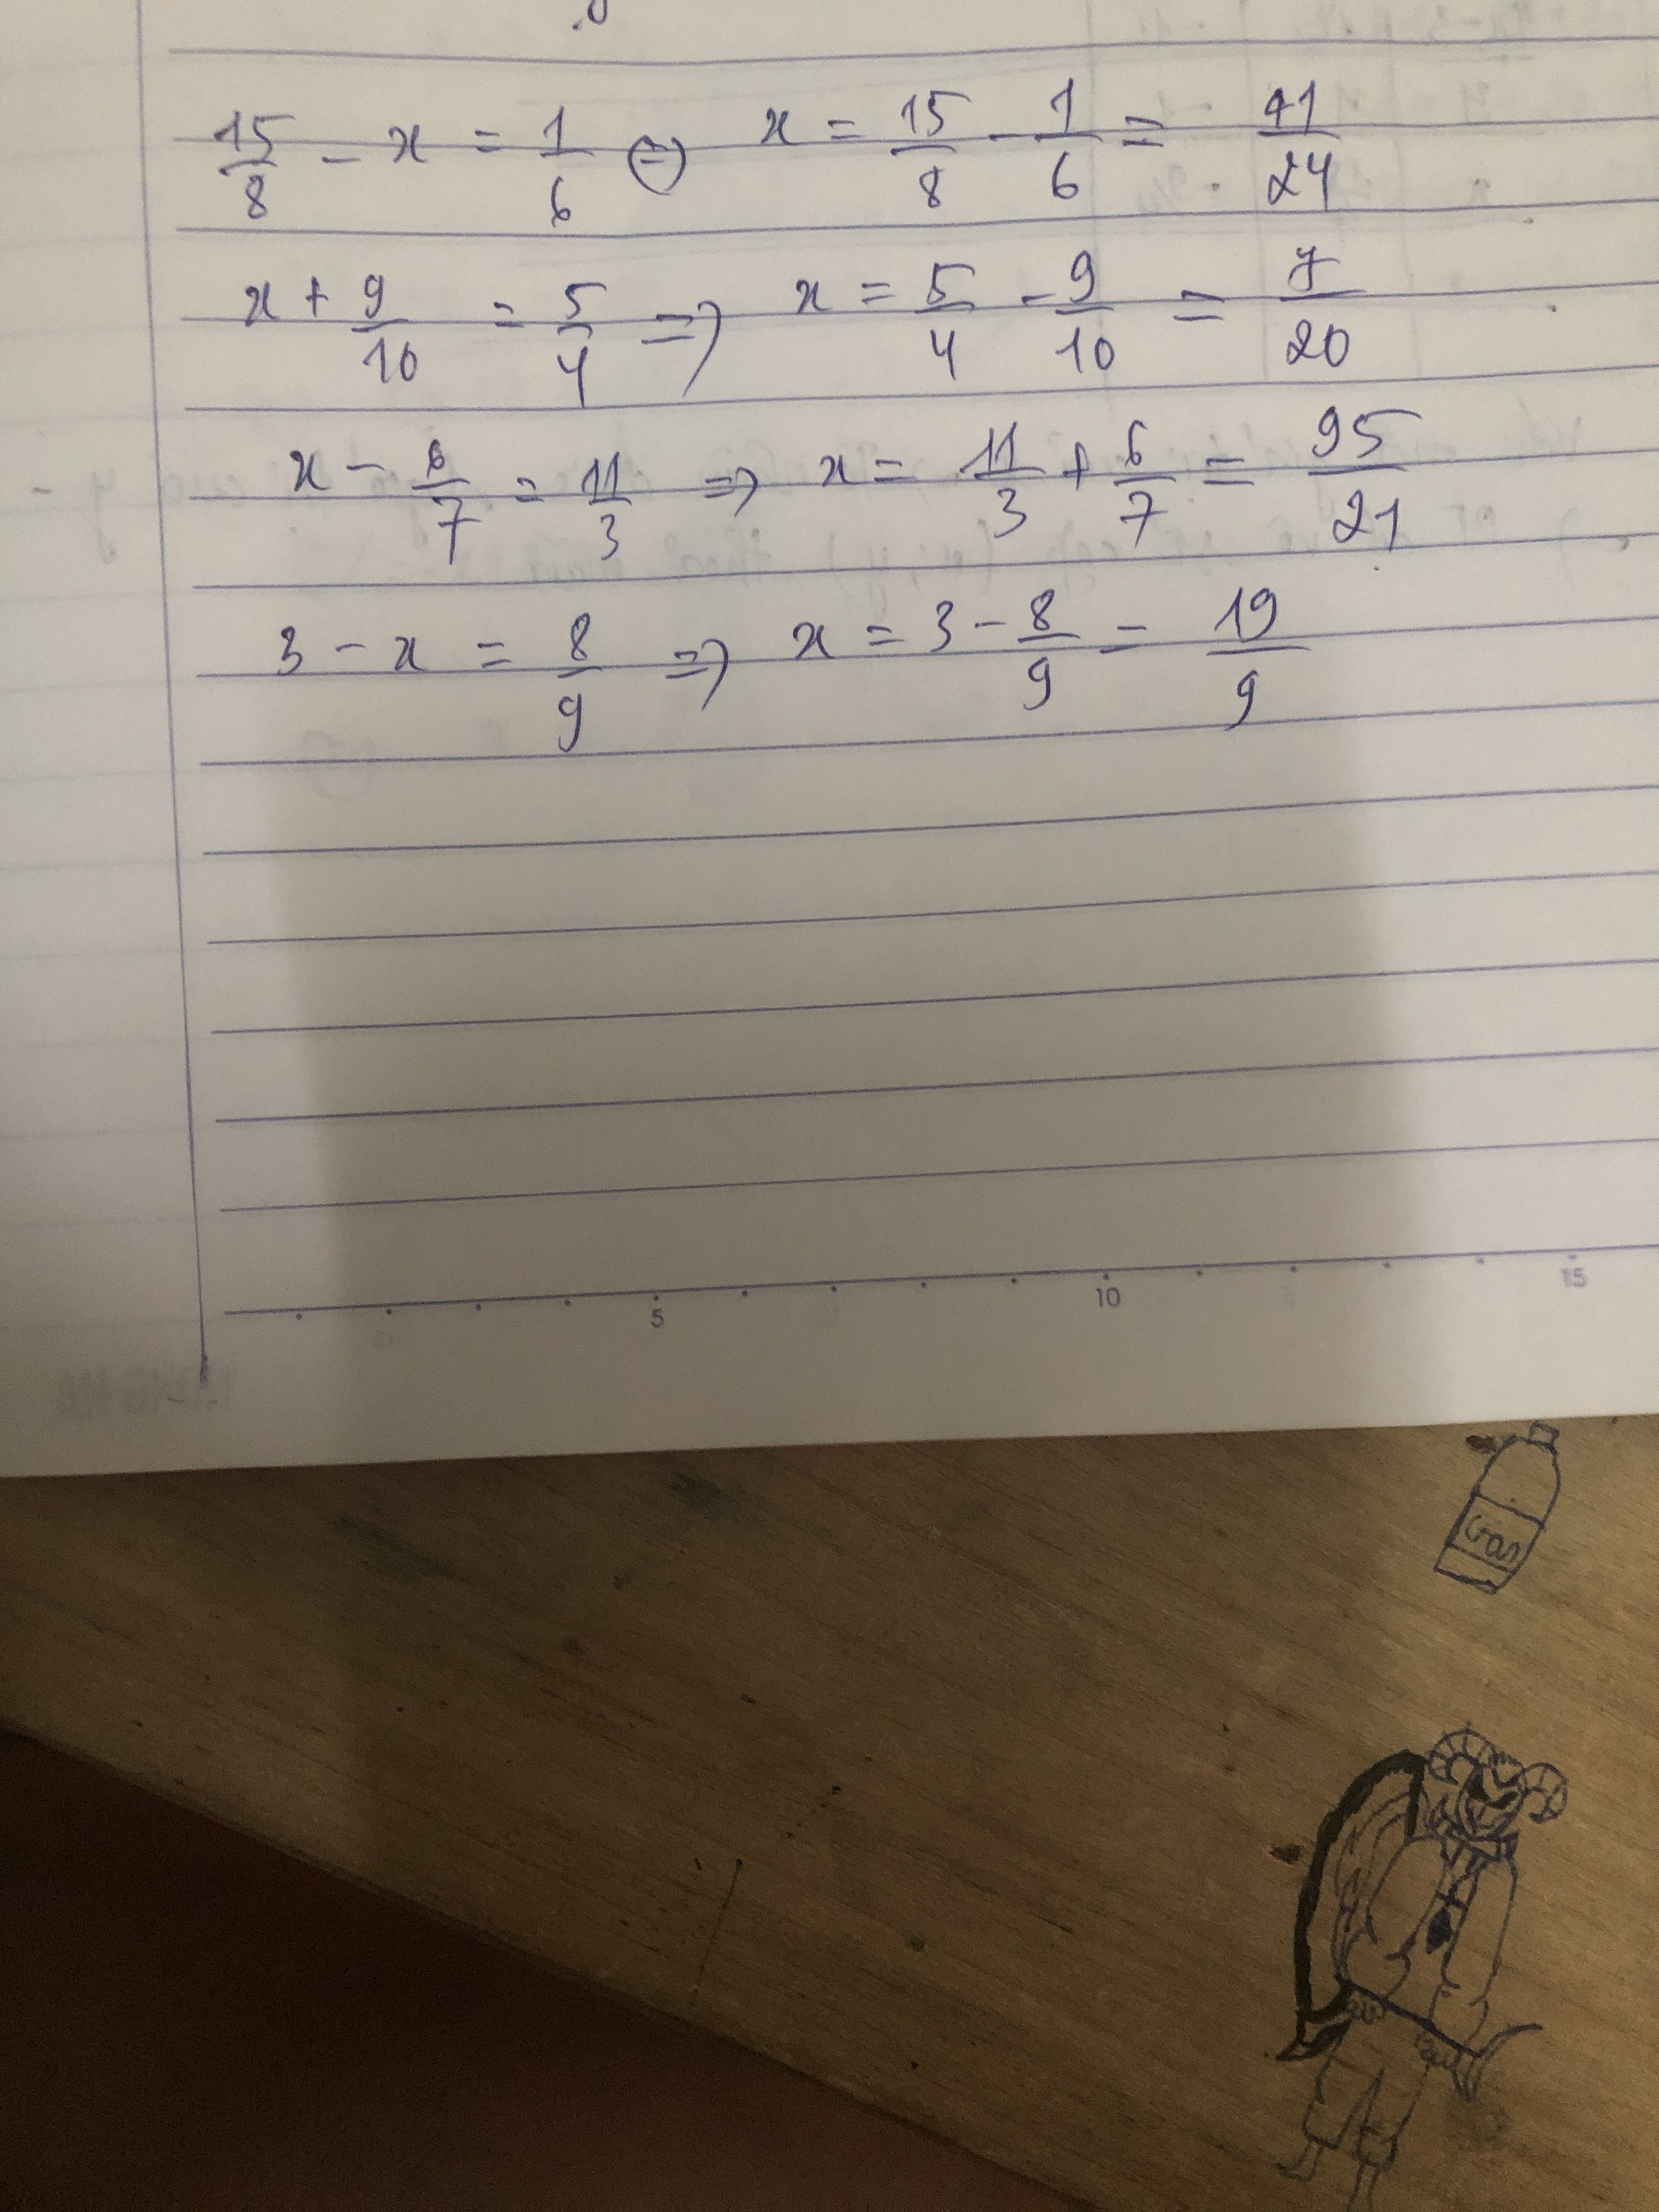 15/8 - x = 1/6 ⇔ x = 15/8 - 1/6 = 41/24
x + 9/10 = 5/4 => x = 5/4 - 9/10 = 7/20
x - 6/7 = 11/3 => x = 11/3 + 6/7 = 95/21
3 - x = 8/9 => x = 3 - 8/9 = 19/9
5 10 15
Gas